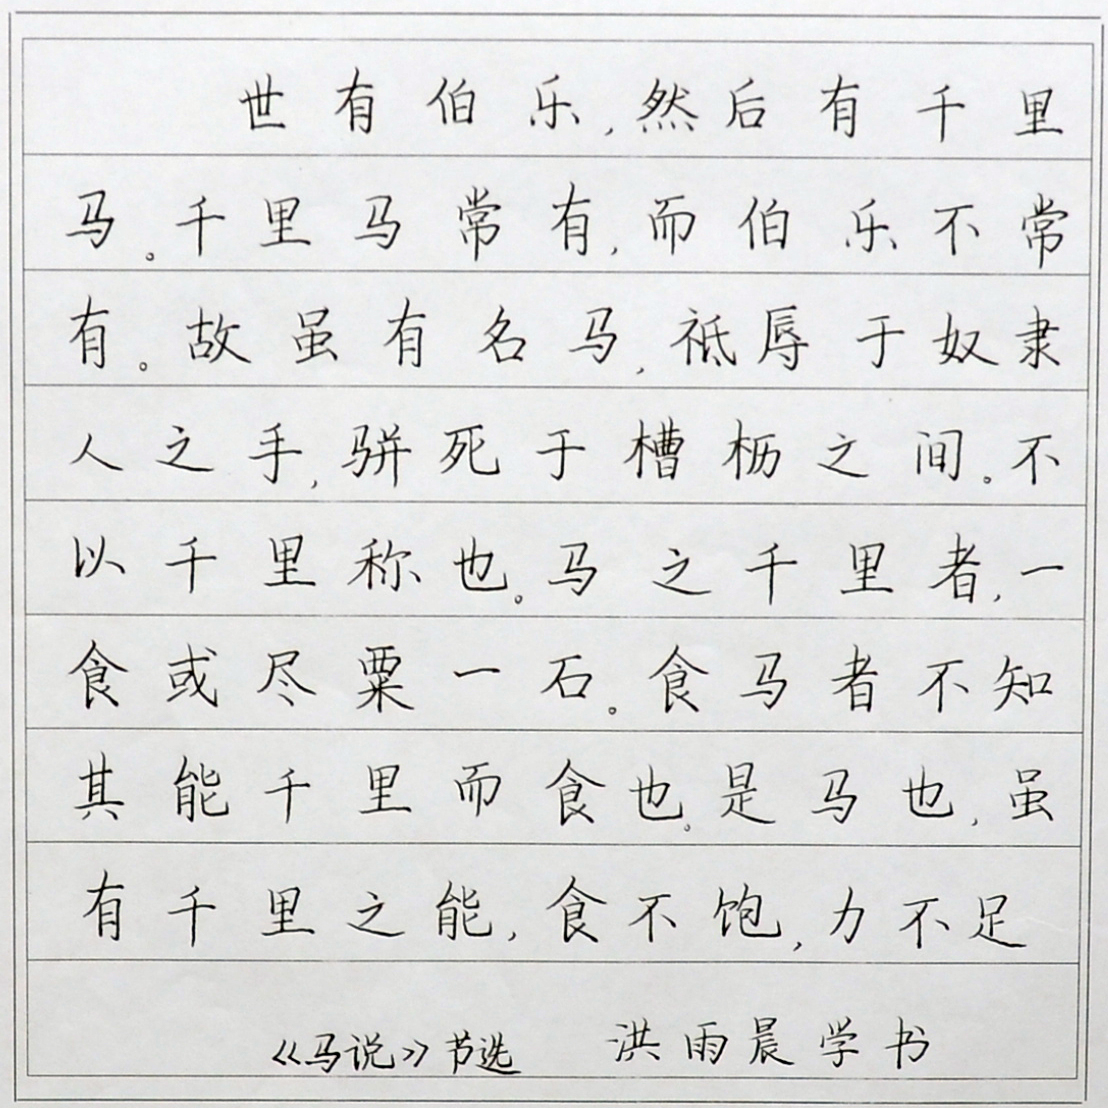 世有伯乐,然后有千里
马。千里马常有,而伯乐不常
有。故虽有名马,祗辱于奴隶
人之手,骈死于槽枥之间。不
以千里称也。马之千里者,一
食或尽粟一石。食马者不知
其能千里而食也。是马也,虽
有千里之能,食不饱,力不足
《马说》节选 洪雨晨学书